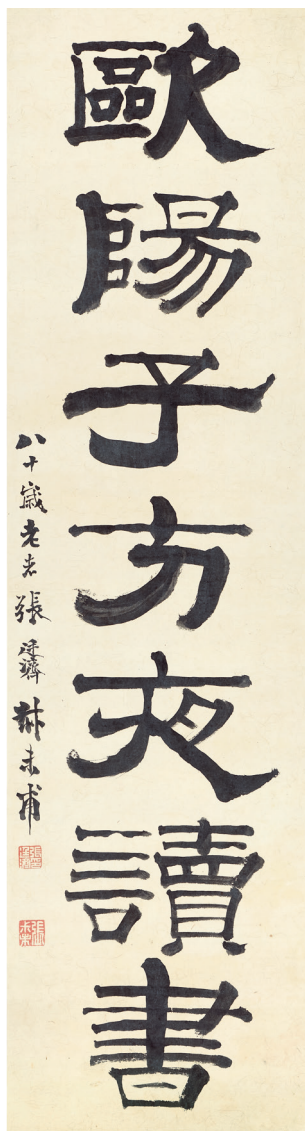 歐陽子方夜讀書
八十歲老者張廷濟叔未甫